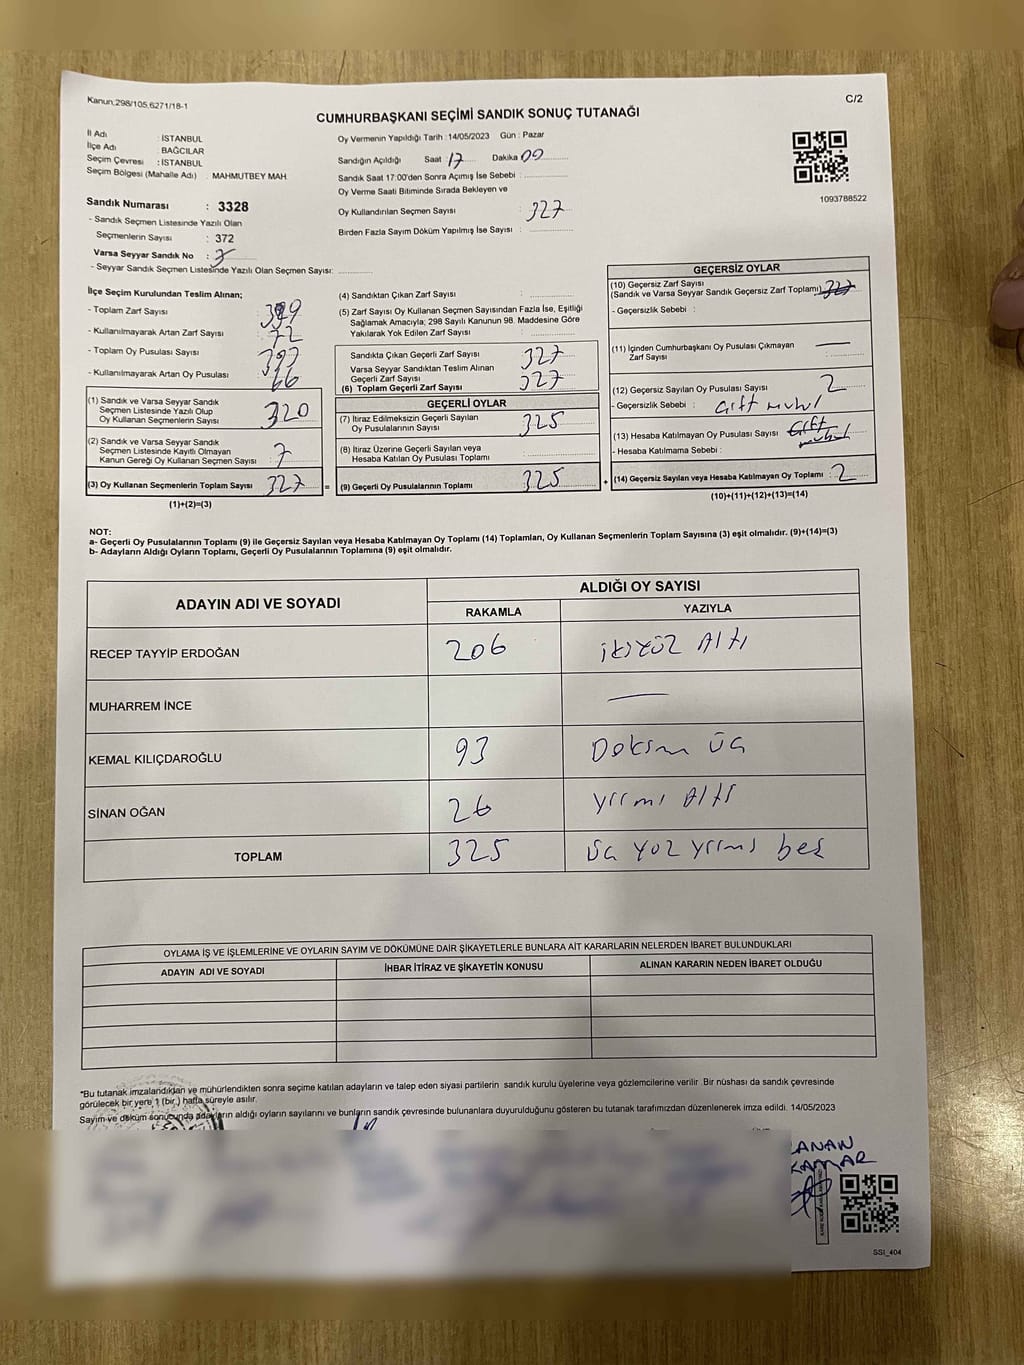 Kanun,298/105,6271/18-1
C/2
CUMHURBAŞKANI SEÇİMİ SANDIK SONUÇ TUTANAĞI
İl Adı : İSTANBUL
İlçe Adı : BAĞCILAR
Seçim Çevresi : İSTANBUL
Seçim Bölgesi (Mahalle Adı) : MAHMUTBEY MAH.
Sandık Numarası : 3328
- Sandık Seçmen Listesinde Yazılı Olan
Seçmenlerin Sayısı : 372
Varsa Seyyar Sandık No :
- Seyyar Sandık Seçmen Listesinde Yazılı Olan Seçmen Sayısı:
Oy Vermenin Yapıldığı Tarih : 14/05/2023 Gün : Pazar
Sandığın Açıldığı Saat 17 Dakika 09
Sandık Saat 17:00'den Sonra Açımış İse Sebebi :
Oy Verme Saati Bitiminde Sırada Bekleyen ve
Oy Kullandırılan Seçmen Sayısı : 327
Birden Fazla Sayım Döküm Yapılmış İse Sayısı :
1093788522
İlçe Seçim Kurulundan Teslim Alınan;
- Toplam Zarf Sayısı
- Kullanılmayarak Artan Zarf Sayısı : 72
- Toplam Oy Pusulası Sayısı
- Kullanılmayarak Artan Oy Pusulası : 66
(1) Sandık ve Varsa Seyyar Sandık
Seçmen Listesinde Yazılı Olup
Oy Kullanan Seçmenlerin Sayısı : 320
(2) Sandık ve Varsa Seyyar Sandık
Seçmen Listesinde Kayıtlı Olmayan
Kanun Gereği Oy Kullanan Seçmen Sayısı : 7
(3) Oy Kullanan Seçmenlerin Toplam Sayısı : 327
(1)+(2)=(3)
=
(4) Sandıktan Çıkan Zarf Sayısı :
(5) Zarf Sayısı Oy Kullanan Seçmen Sayısından Fazla İse, Eşitliği
Sağlamak Amacıyla; 298 Sayılı Kanunun 98. Maddesine Göre
Yakılarak Yok Edilen Zarf Sayısı :
Sandıkta Çıkan Geçerli Zarf Sayısı : 327
Varsa Seyyar Sandıktan Teslim Alınan
Geçerli Zarf Sayısı
(6) Toplam Geçerli Zarf Sayısı : 327
GEÇERLİ OYLAR
(7) İtiraz Edilmeksizin Geçerli Sayılan
Oy Pusulalarının Sayısı : 325
(8) İtiraz Üzerine Geçerli Sayılan veya
Hesaba Katılan Oy Pusulası Toplamı :
(9) Geçerli Oy Pusulalarının Toplamı : 325
+
GEÇERSİZ OYLAR
(10) Geçersiz Zarf Sayısı
(Sandık ve Varsa Seyyar Sandık Geçersiz Zarf Toplamı) 327
- Geçersizlik Sebebi :
(11) İçinden Cumhurbaşkanı Oy Pusulası Çıkmayan
Zarf Sayısı :
(12) Geçersiz Sayılan Oy Pusulası Sayısı : 2
- Geçersizlik Sebebi : Çift mühül
(13) Hesaba Katılmayan Oy Pusulası Sayısı : Çift
mühül
- Hesaba Katılmama Sebebi :
(14) Geçersiz Sayılan veya Hesaba Katılmayan Oy Toplamı : 2
(10)+(11)+(12)+(13)=(14)
NOT:
a- Geçerli Oy Pusulalarının Toplamı (9) ile Geçersiz Sayılan veya Hesaba Katılmayan Oy Toplamı (14) Toplamları, Oy Kullanan Seçmenlerin Toplam Sayısına (3) eşit olmalıdır. (9)+(14)=(3)
b- Adayların Aldığı Oyların Toplamı, Geçerli Oy Pusulalarının Toplamına (9) eşit olmalıdır.
ADAYIN ADI VE SOYADI
ALDIĞI OY SAYISI
RAKAMLA YAZIYLA
RECEP TAYYİP ERDOĞAN 206 İKİYÜZ ALTI
MUHARREM İNCE
KEMAL KILIÇDAROĞLU 93 Doksan üç
SİNAN OĞAN 26 yirmi Altı
TOPLAM 325 üç yüz yirmi beş
OYLAMA İŞ VE İŞLEMLERİNE VE OYLARIN SAYIM VE DÖKÜMÜNE DAİR ŞİKAYETLERLE BUNLARA AİT KARARLARIN NELERDEN İBARET BULUNDUKLARI
ADAYIN ADI VE SOYADI İHBAR İTİRAZ VE ŞİKAYETİN KONUSU ALINAN KARARIN NEDEN İBARET OLDUĞU
*Bu tutanak imzalandıktan ve mühürlendikten sonra seçime katılan adayların ve talep eden siyasi partilerin sandık kurulu üyelerine veya gözlemcilerine verilir .Bir nüshası da sandık çevresinde
görülecek bir yere 1 (bir ) hafta süreyle asılır.
Sayım ve döküm sonucunda adayların aldığı oyların sayılarını ve bunların sandık çevresinde bulunanlara duyurulduğunu gösteren bu tutanak tarafımızdan düzenlenerek imza edildi. 14/05/2023
SSI_404